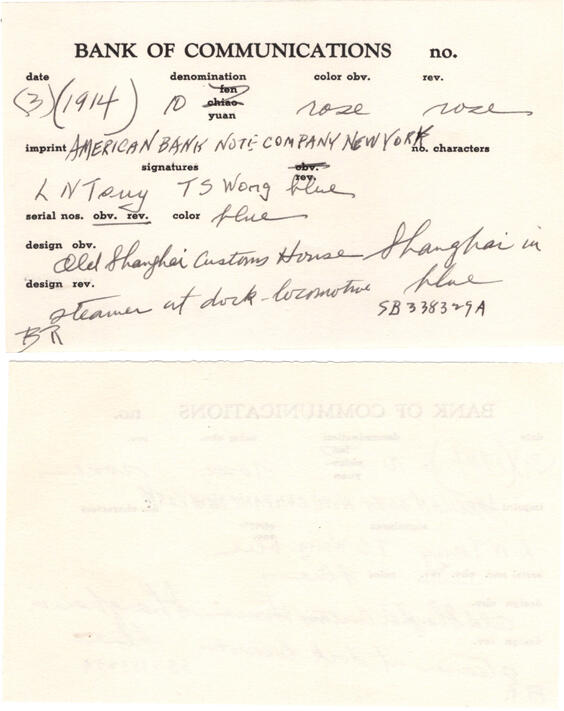 BANK OF COMMUNICATIONS no.
date denomination color obv. rev.
fen
(3) (1914) 10 chiao rose rose
yuan
imprint AMERICAN BANK NOTE COMPANY NEW YORK no. characters
signatures obv.
rev.
L N Tsuy T S Wong blue
serial nos. obv. rev. color blue
design obv.
Old Shanghai Customs House Shanghai in
design rev. blue
steamer at dock - locomotive
SB338329A
BR